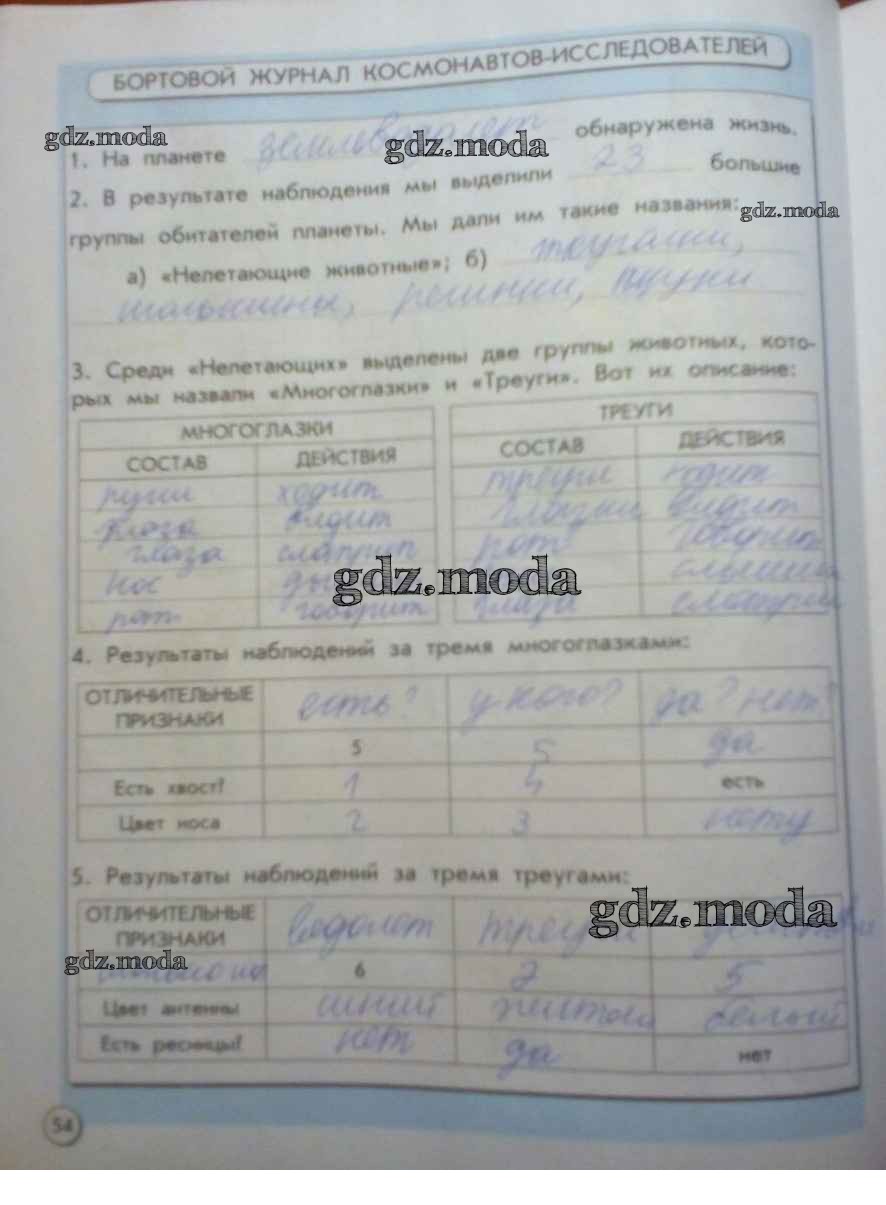 БОРТОВОЙ ЖУРНАЛ КОСМОНАВТОВ-ИССЛЕДОВАТЕЛЕЙ
gdz.moda
gdz.moda
1. На планете обнаружена жизнь.
2. В результате наблюдения мы выделили 23 большие
gdz.moda
группы обитателей планеты. Мы дали им такие названия:
а) «Нелетающие животные»; б)
3. Среди «Нелетающих» выделены две группы животных, кото-
рых мы назвали «Многоглазки» и «Треуги». Вот их описание:
МНОГОГЛАЗКИ ТРЕУГИ
СОСТАВ ДЕЙСТВИЯ СОСТАВ ДЕЙСТВИЯ
ходит треуги ходит
видит глазки видит
глаза рот говорит
нос
gdz.moda
рот говорит глаза
4. Результаты наблюдений за тремя многоглазками:
ОТЛИЧИТЕЛЬНЫЕ ПРИЗНАКИ есть? у кого? да? нет?
5 5 да
Есть хвост? 1 4 есть
Цвет носа 2 3 нету
5. Результаты наблюдений за тремя треугами:
gdz.moda
ОТЛИЧИТЕЛЬНЫЕ ПРИЗНАКИ водолет треуги
gdz.moda
6 2 5
Цвет антенны синий желтый белый
Есть ресницы? нет да нет
54